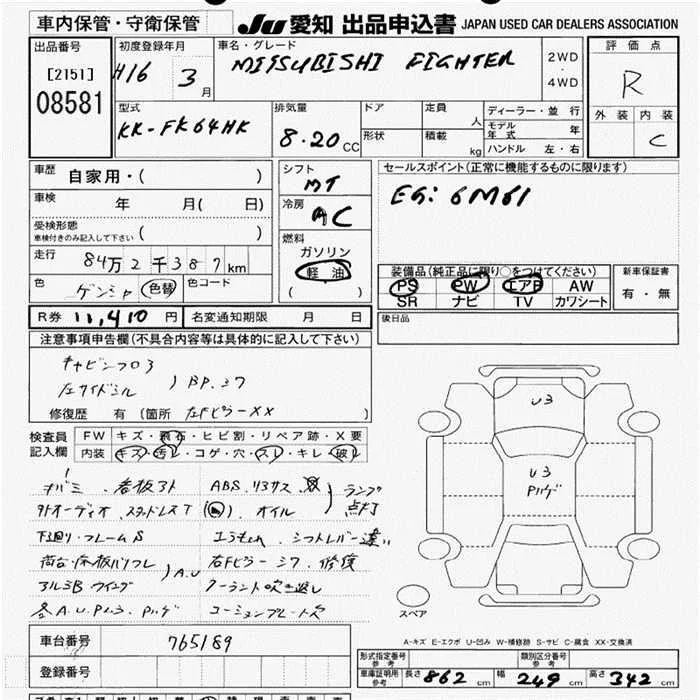 車内保管・守衛保管
JU 愛知 出品申込書 JAPAN USED CAR DEALERS ASSOCIATION
出品番号
[2151]
08581
初度登録年月
H16 3月
車名・グレード
MITSUBISHI FIGHTER
2WD
・
4WD
評価点
R
外装 内装
C
型式
KK-FK64HK
排気量
8.20 CC
ドア
形状
定員
人
積載
kg
ディーラー・並行
モデル年式 年
ハンドル 左・右
車歴 自家用・( )
車検 年 月( 日)
受検形態
車検付きのみ記入して下さい ( )
走行 84万2千387km
色 ゲンシャ 色替 色コード
シフト
MT
冷房
AC
燃料
ガソリン
軽油
( )
セールスポイント(正常に機能するものに限ります)
EG: 6M61
装備品(純正品に限り○をつけてください)
PS PW エアB AW
SR ナビ TV カワシート
新車保証書
有・無
R券 11,410 円 名変通知期限 月 日
後日品
注意事項申告欄(不具合内容等は具体的に記入して下さい)
キャビンフロ3
左サイドシル ) BP.ミワ
修復歴 有 (箇所 左FピラーXX )
検査員
記入欄
FW キズ・飛石・ヒビ割・リペア跡・X要
内装 キズ・汚レ・コゲ・穴・スレ・キレ・破レ
ナバミ.看板アト
ABS.リタサス
ランプ点灯
外オーディオ.スタッドレスT
オイル
下廻り・フレームS
シフトレバー違い
荷台・床板バリフレ
アルミB ウイング
) A.U
右Fピラー ミワ.修復
クーラント吹き返し
各A.U.Pハ3.Pハゲ
コーションプレート欠
U3
U3
Pハゲ
スペア
A-キズ E-エクボ U-凹み W-補修跡 S-サビ C-腐食 XX-交換済
車台番号 765189
登録番号
形式指定番号
参考
類別区分番号
参考
車庫証明用
参考
長さ 862 cm 幅 249 cm 高さ 342 cm